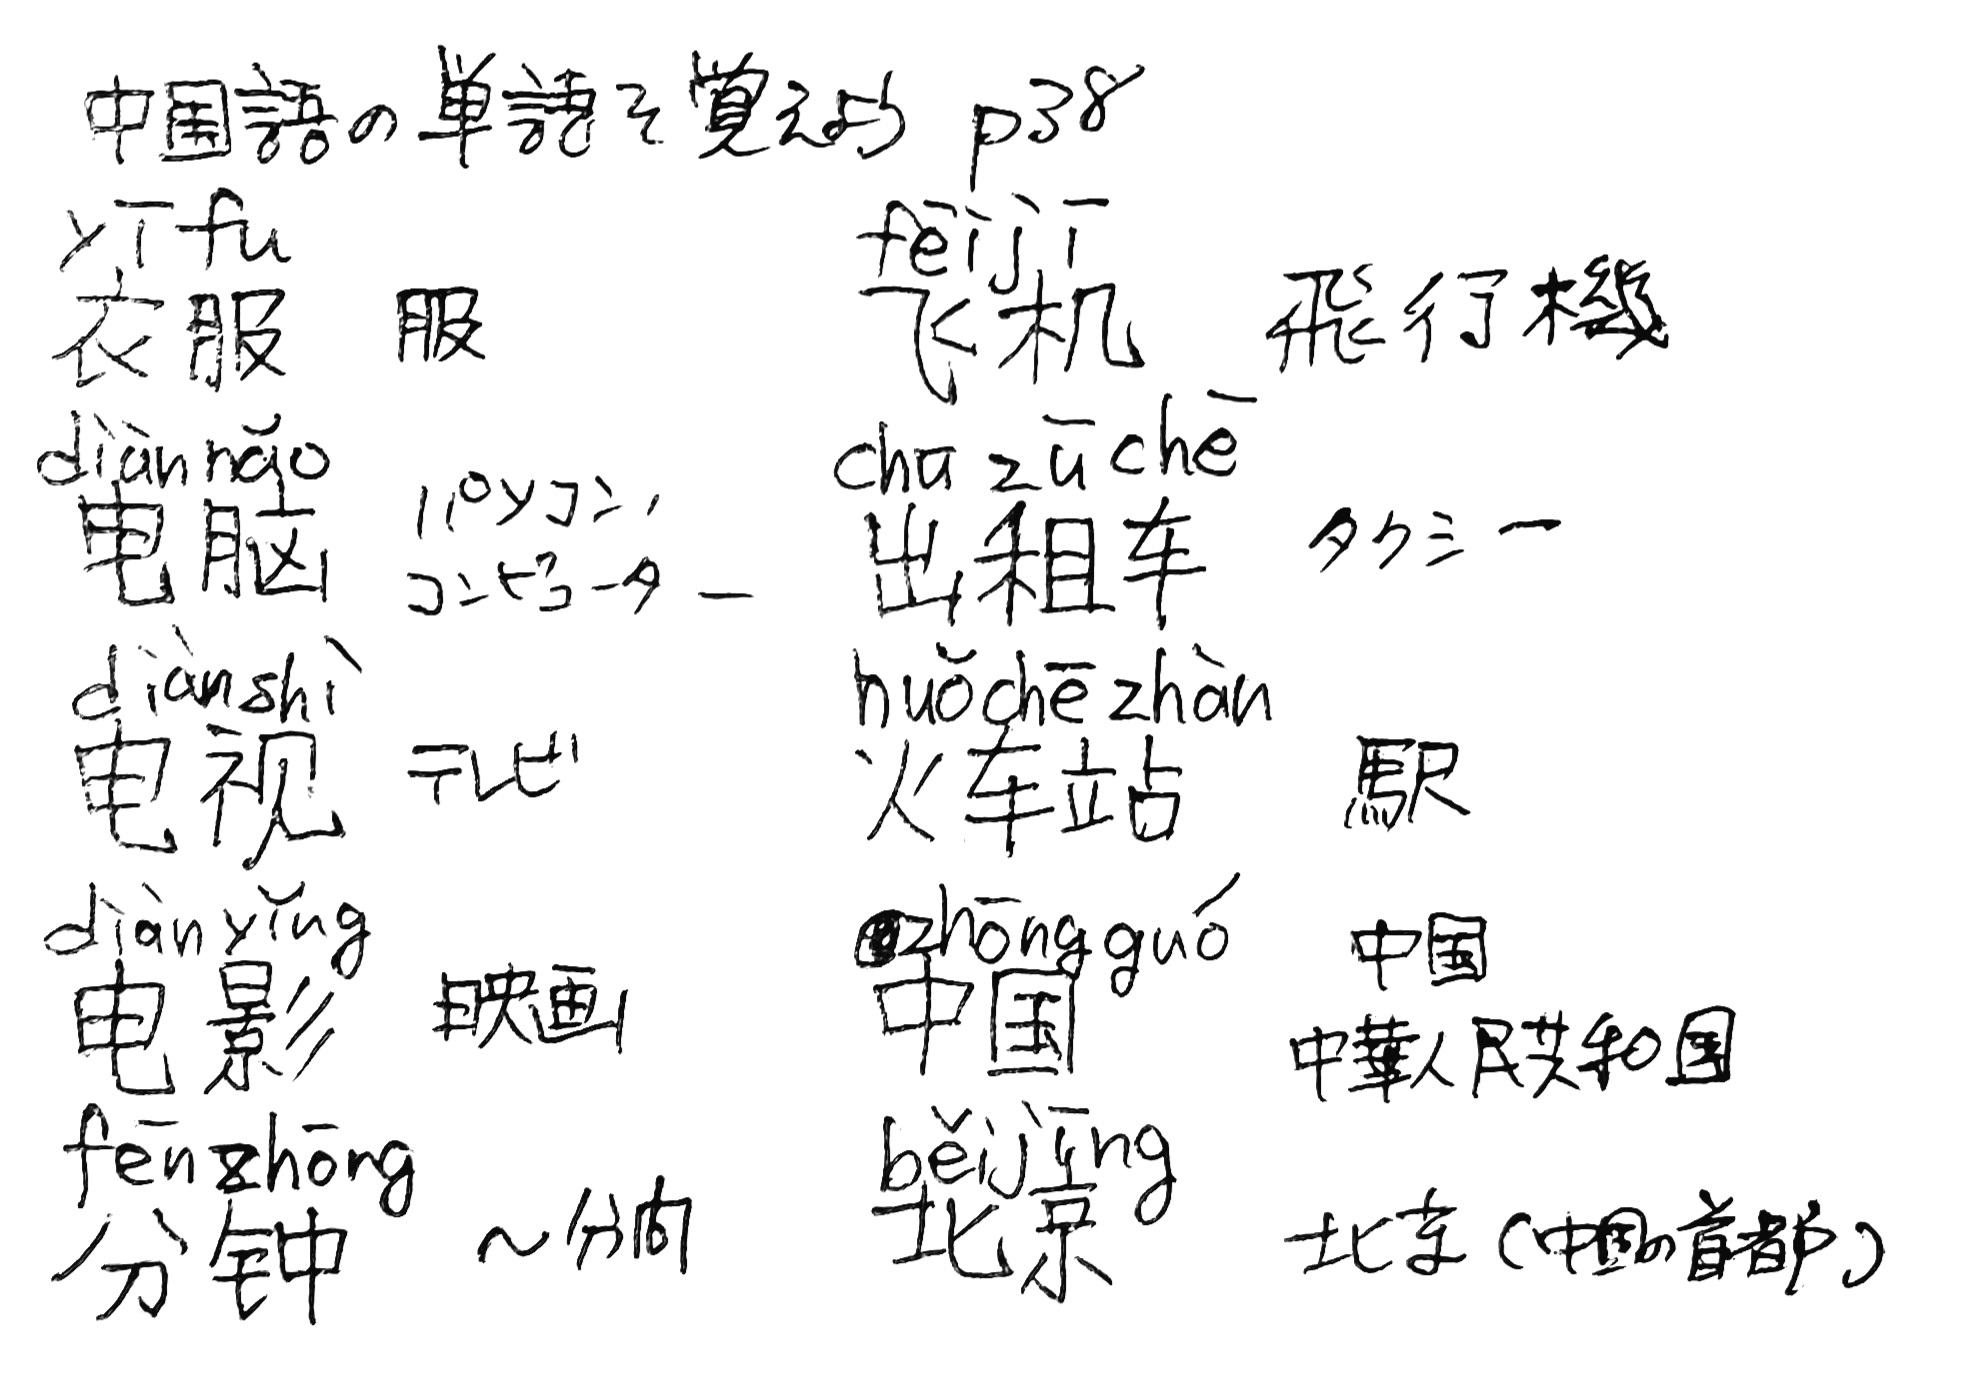 中国語の単語を覚えよう p38
yī fu
衣服 服
diàn nǎo
电脑 パソコン、
コンピューター
diàn shì
电视 テレビ
diàn yǐng
电影 映画
fēn zhōng
分钟 〜分间
fēi jī
飞机 飛行機
chū zū chē
出租车 タクシー
huǒ chē zhàn
火车站 駅
zhōng guó
中国 中国
中華人民共和国
běi jīng
北京 北京(中国の首都)